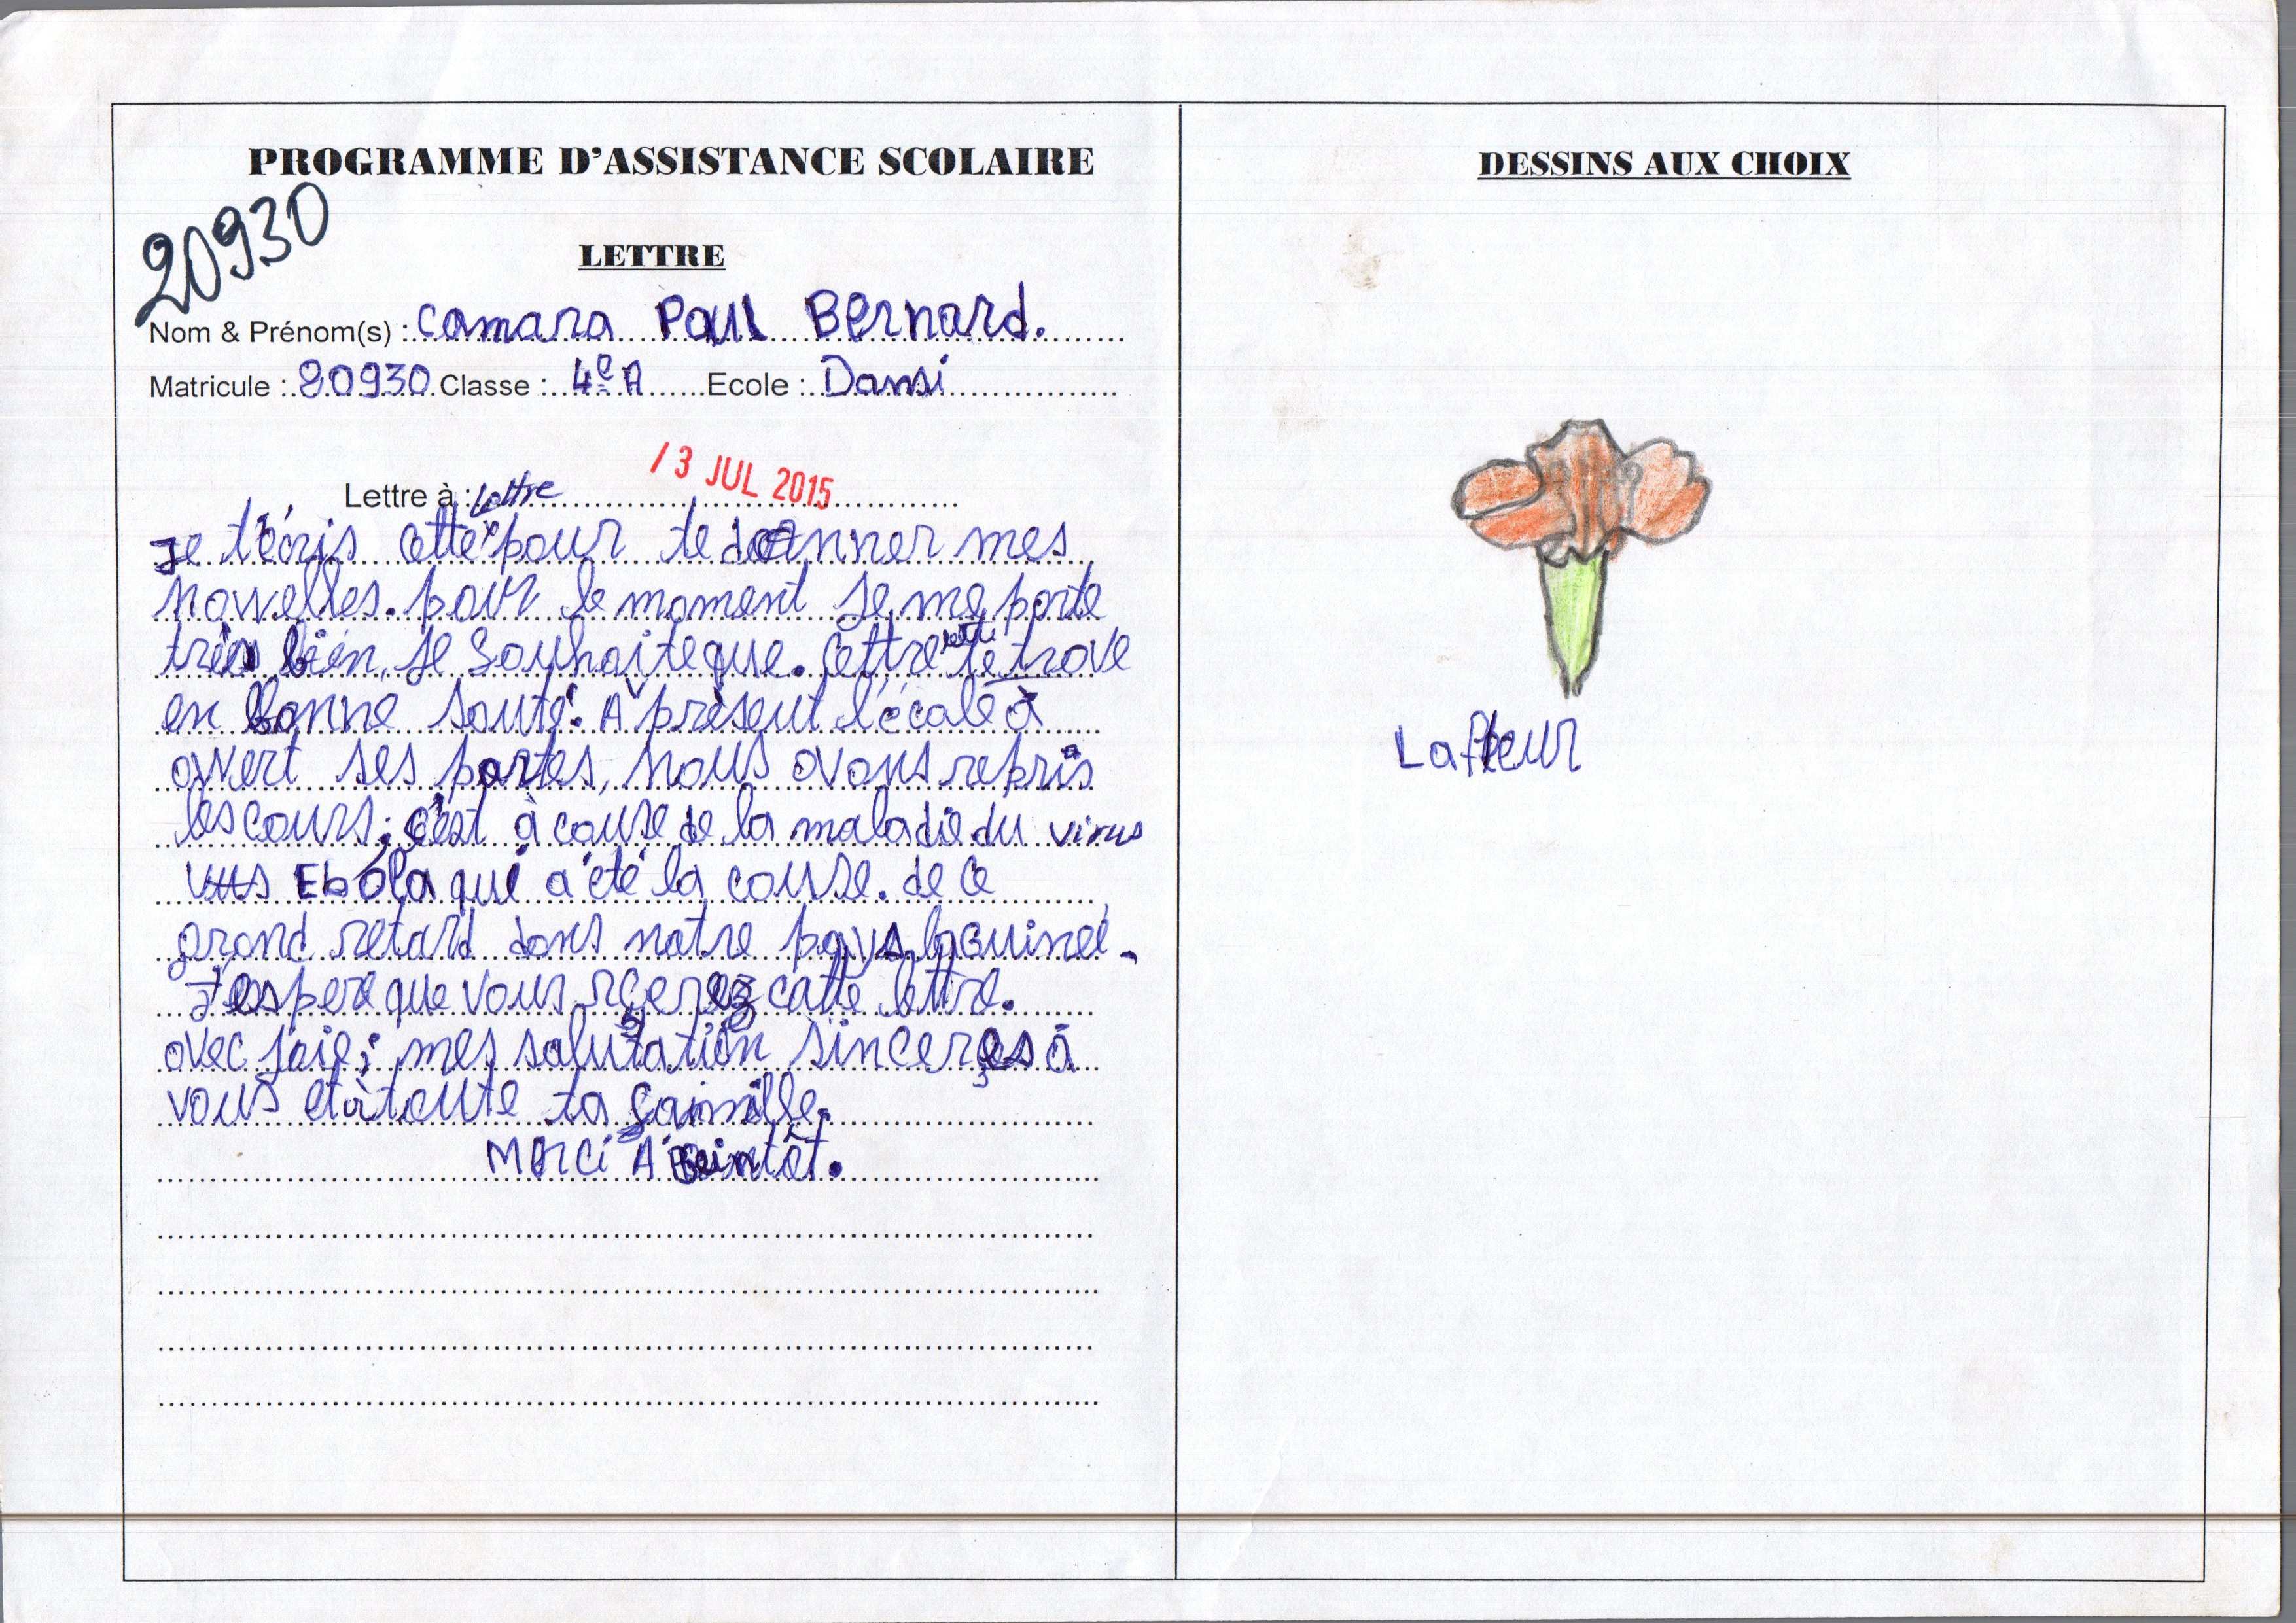 PROGRAMME D'ASSISTANCE SCOLAIRE
20930
LETTRE
Nom & Prénom(s) : Camara Paul Bernard.
Matricule : 20930 Classe : 4e A Ecole : Dansi
Lettre à :
13 JUL 2015
lettre
Je t'écris cette pour te donner mes
nouvelles. pour le moment je me porte
très bien, je souhaite que. cettre lettre te trove
en bonne santé. A présent l'école à
ouvert ses portes, nous avons repris
les cours ; c'est à cause de la maladie du virus
Ebola qui a été la couse. de ce
grand retard dans notre pays. la Guineé.
J'espere que vous rçerez catte lettre.
avec joie ; mes salutation sinceres à
vous et à toute ta famille.
Merci A Beintôt.
DESSINS AUX CHOIX
La fleur